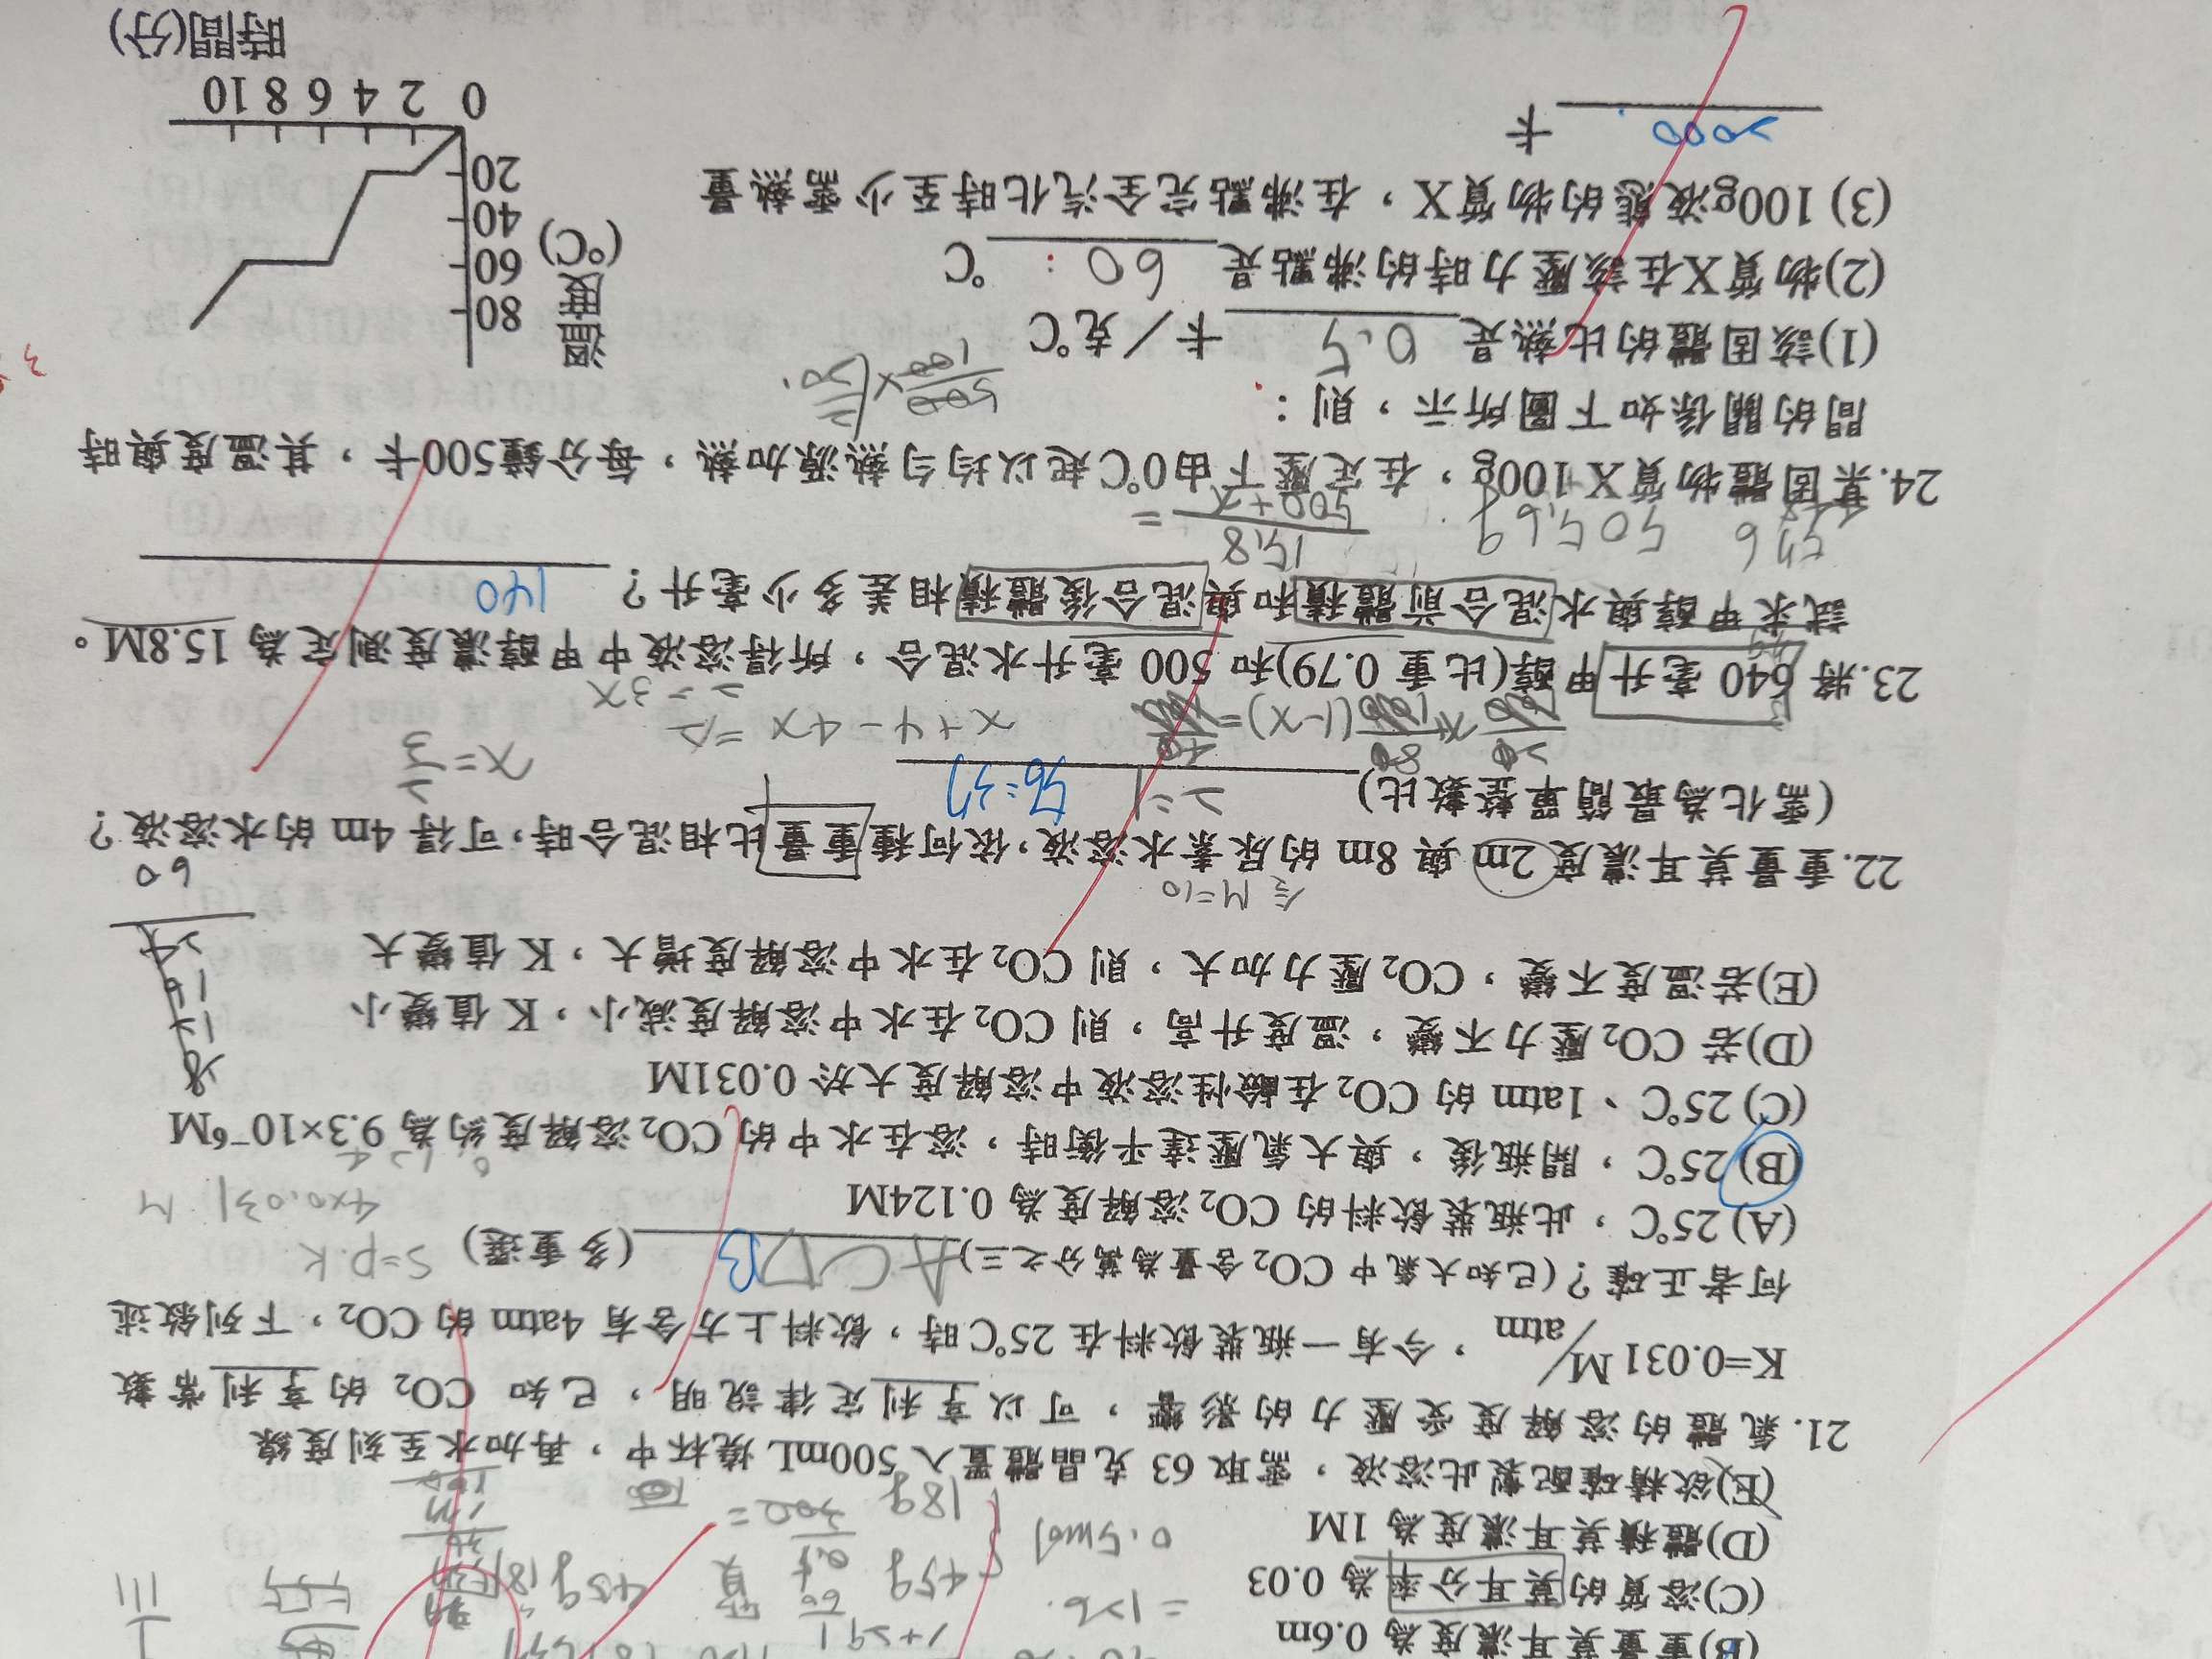 (B)重量莫耳濃度為 0.6m
(C)溶質的莫耳分率為 0.03
(D)體積莫耳濃度為 1M
(E)欲精確配製此溶液，需取 63 克晶體置入 500mL 燒杯中，再加水至刻度線
0.5mol
45g
18g
21. 氣體的溶解度受壓力的影響，可以亨利定律說明，已知 CO₂ 的亨利常數
K=0.031 M/atm，今有一瓶裝飲料在 25°C時，飲料上方含有 4atm 的 CO₂，下列敘述
何者正確？(已知大氣中 CO₂ 含量為萬分之三) ACDB (多重選) S=P.K
(A) 25°C，此瓶裝飲料的 CO₂ 溶解度為 0.124M
4×0.031 M
(B) 25°C，開瓶後，與大氣壓達平衡時，溶在水中的 CO₂ 溶解度約為 9.3×10⁻⁶M
(C) 25°C、1atm 的 CO₂ 在鹼性溶液中溶解度大於 0.031M
(D)若 CO₂ 壓力不變，溫度升高，則 CO₂ 在水中溶解度減小，K 值變小
(E)若溫度不變，CO₂ 壓力加大，則 CO₂ 在水中溶解度增大，K 值變大
28
12
16
24
60
全 M=10
22.重量莫耳濃度 2m 與 8m 的尿素水溶液，依何種重量比相混合時，可得 4m 的水溶液？
(需化為最簡單整數比) 2=1 56:37
x=2/3
x+4-4x=2
2=3x
23.將 640 毫升甲醇(比重 0.79)和 500 毫升水混合，所得溶液中甲醇濃度測定為 15.8M。
試求甲醇與水混合前體積和與混合後體積相差多少毫升？ 140
505.6g
15.8
500+x =
24.某固體物質X 100g，在定壓下由0°C起以均勻熱源加熱，每分鐘500卡，其溫度與時
間的關係如下圖所示，則：
(1)該固體的比熱是 0.5 卡／克°C
(2)物質X在該壓力時的沸點是 60 °C
(3) 100g液態的物質X，在沸點完全汽化時至少需熱量
2000 卡
溫度
(°C)
80
60
40
20
0 2 4 6 8 10
時間(分)